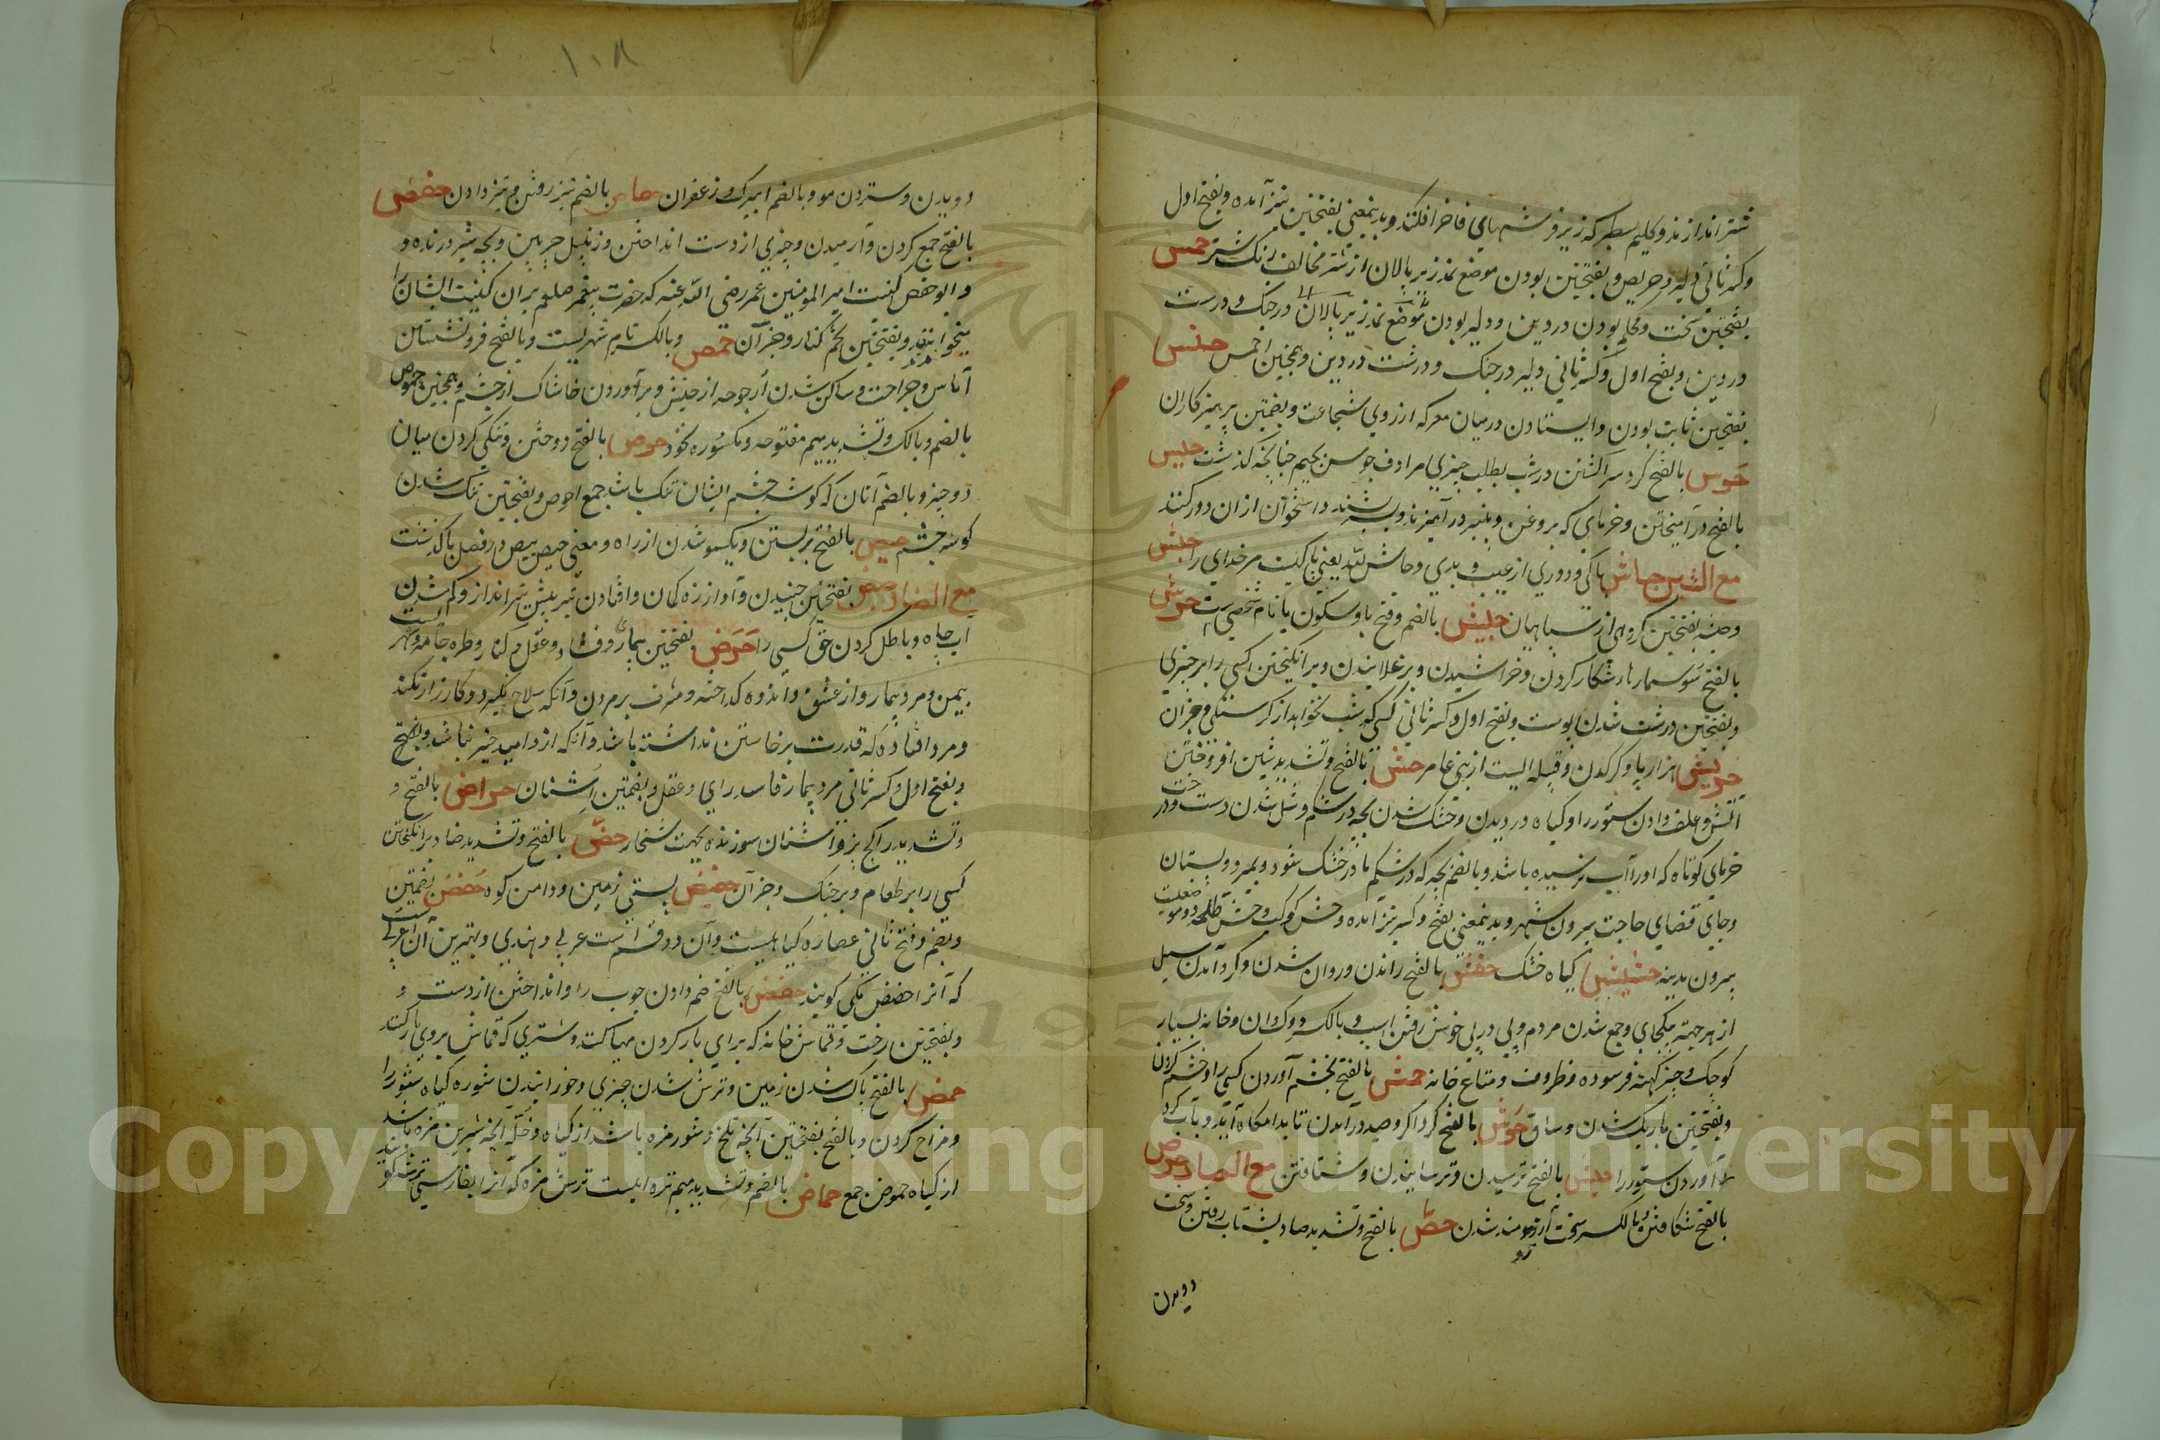 شتر اندازند و کلیم سطبر که زیر فرشهای فاخر افکنند و بدینمعنی بفتحتین نیز آمده و بفتح اول
و کسر ثانی دلیر و حریص و بفتحتین بودن موضع نمد زیر پالان از شتر مخالف رنک شتر حمس
بفتحتین سخت و محکم بودن در دین و دلیر بودن در جنک و درشت
در دین و بفتح اول و کسر ثانی دلیر در جنک و درشت در دین و همچنین احمس حلس
بفتحتین ثابت بودن و ایستادن در میان معرکه از روی شجاعت و بضمتین پرهیز کاران
حوس بالفتح کرد سرا کشتن در شب بطلب چیزی مرادف جوس بجیم چنانچه کذشت حیس
بالفتح در آمیختن و خرمای که بروغن و پنیر در آمیزند و بسرشند و استخوان از ان دور کنند
مع الشین حاش پاکی و دوری از عیب و بدی و حاش لله یعنی پاکیت مر خدای را حبش
و حبشه بفتحتین کروهی از سیاهان حبیش بالضم و فتح با و سکون یا نام شخصی ست حرش
بالفتح سوسمار را شکار کردن و خراشیدن و برغلانیدن و برانکیختن کسی را بر چیزی
و بفتحتین درشت شدن پوست و بفتح اول و کسر ثانی کسی که شب نخوابد از کرسنکی و جز ان
حریش هزار پا و کرکدن و قبیله ایست از بنی عامر حش بالفتح و تشدید شین افروختن
آتش و علف دادن ستور را و کیاه درودن و خشک شدن بچه در شکم و شل شدن دست و درخت
خرمای کوتاه که اورا آب نرسیده باشد و بالضم بچه که در شکم مادر خشک شود و بمیرد و بستان
و جای قضای حاجت بیرون شهر و بدینمعنی بفتح و کسر نیز آمده و حش کوکب و حش طلحه دو موضعیست
بیرون مدینه حشیش کیاه خشک حفش بالفتح راندن و روان شدن و کرد آمدن سیل
از هر جهة بیکجای و جمع شدن مردم و پی در پی خوش رفتن اسپ و بالکسر دوک دان و خانه بسیار
کوچک و چیز کهنه فرسوده و ظروف و متاع خانه حمش بالفتح بخشم آوردن کسی را و خشم کردن
و بفتحتین باریک شدن ساق حوش بالفتح کرداکرد صید در آمدن تا بدامکاه آید و باب کرد
آوردن ستور را حیش بالفتح ترسیدن و ترسانیدن و شتافتن مع الصاد حرص
بالفتح شکافتن و بالکسر سخت آرزومند شدن حص بالفتح و تشدید صاد بشتاب رفتن و سخت
دویدن
۱۰۸
دویدن و ستردن مو و بالضم اسپرک و زعفران حصاص بالضم تیز رفتن و تیز دادن حفص
بالفتح جمع کردن و آرمیدن و چیزی از دست انداختن و زنبیل چرمین و بچه شیر درنده و
و ابو حفص کنیت امیر المومنین عمر رضی الله عنه که حضرت پیغمبر صلعم بران کنیت ایشان را
میخواندند و بفتحتین تخم کنار و جز آن حمص و بالکسر نام شهریست و بالفتح فرو نشستن
آماس و جراحت و ساکن شدن ارجوحه از جنبش و برآوردن خاشاک از چشم و همچنین حموص
بالضم و بالکسر و تشدید میم مفتوحه و مکسوره نخود حوص بالفتح دوختن و تنکی کردن میان
دو چیز و بالضم آنان که کوشه چشم ایشان تنک باشد جمع احوص و بفتحتین تنک شدن
کوشه چشم حیص بالفتح برکشتن و یکسو شدن از راه و معنی حیص بیص در فصل با کذشت
مع الضاد حبض بفتحتین جنبیدن و آواز زه کمان و افتادن تیر پیش تیر انداز و کم شدن
آب چاه و باطل کردن حق کسی را حرض بفتحتین بیمار و فساد و عقل و کنار و طره جامه و شهریست
بیمن و مرد بیمار و از عشق و اندوه کداخته و مشرف بر مردن و آنکه سلاح نکیرد و کارزار نکند
و مرد افتاده که قدرت برخاستن نداشته باشد و آنکه از و امید خیر نباشد و بالفتح
و بفتح اول و کسر ثانی مرد بیمار فاسد رای و عقل و بضمتین اشنان حراض بالفتح و
و تشدید را کج پز و اشنان سوزنده بجهت شخار حض بالفتح و تشدید ضاد برانکیختن
کسی را بر طعام و بر جنک و جز آن حضیض پستی زمین و دامن کوه حضض بضمتین
و بضم و فتح ثانی عصاره کیاهیست و آن دو قسم است عربی و هندی و بهترین آن عربی است
که آنرا حضض مکی کویند حفض بالفتح خم دادن چوب را و انداختن از دست و
و بفتحتین رخت و قماش خانه که برای بار کردن مهیا کنند و شتری که قماش بروی بار کنند
حمض بالفتح پاک شدن زمین و ترش شدن چیزی و خورانیدن شوره کیاه ستور را
و مزاح کردن و بالفتح بفتحتین آنچه تلخ و شور مزه باشد از کیاه و خله آنچه شیرین مزه باشد
از کیاه حموض جمع حماض بالضم و تشدید میم تره ایست ترش مزه که آنرا بفارسی ترشک کویند
Copyright © King Saud University
1957